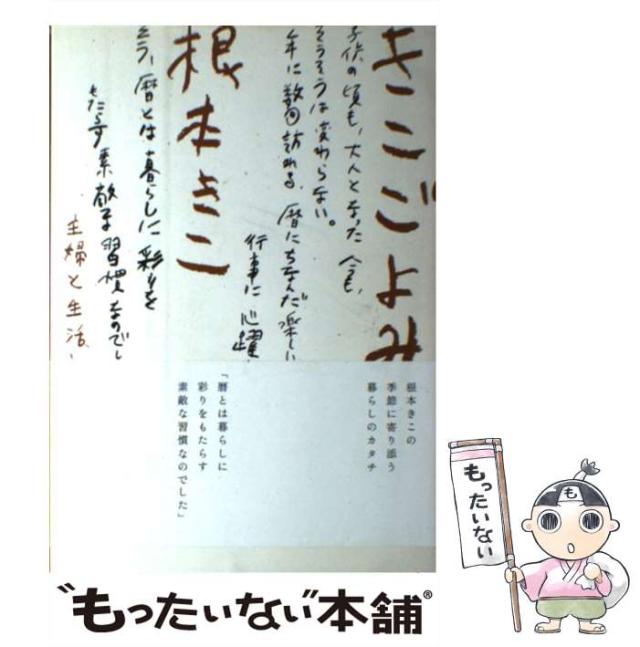 きこごよみ
子供の頃も、大人となった今も、
そうそうは変わらない。
年に数回訪れる、暦にちなんだ楽しい
行事に心躍
根本きこ
そう、暦とは暮らしに彩りを
もたらす素敵な習慣なのでし
主婦と生活
根本きこの
季節に寄り添う
暮らしのカタチ
「暦とは暮らしに
彩りをもたらす
素敵な習慣なのでした」
もったいない
も
"もったいない"本舗®